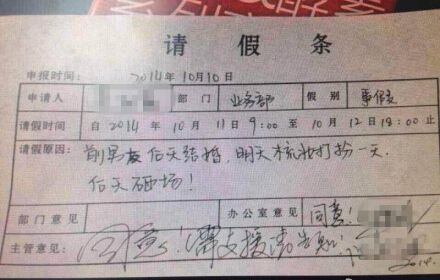 请假条
申报时间: 2014年10月10日
申请人 部门 业务部 假别 事假
请假时间: 自2014年10月11日9:00至10月12日18:00止
请假原因: 前男友后天结婚,明天梳妆打扮一天,
后天砸场!
部门意见 办公室意见 同意!
主管意见: 同意!需支援请告知!
2014.